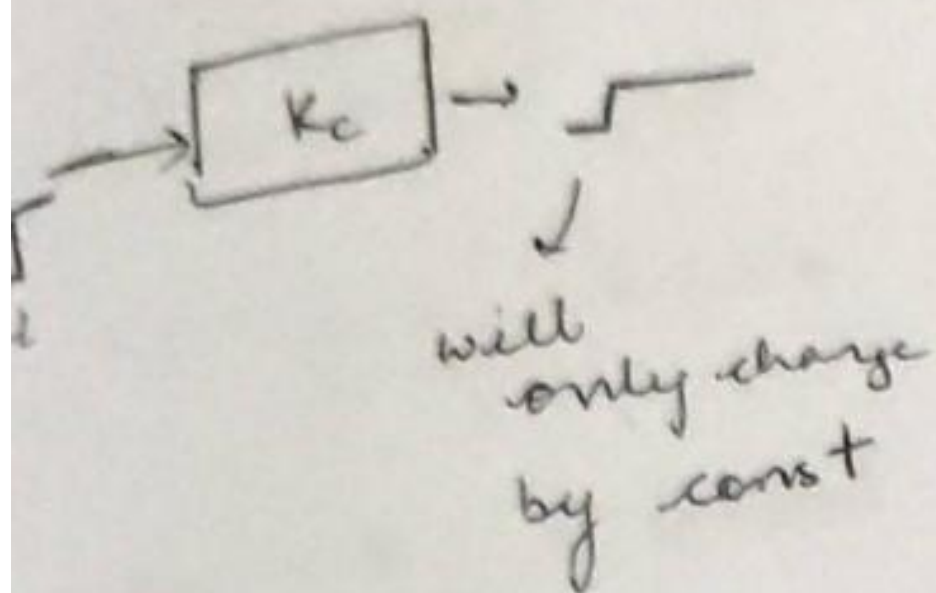 Kc
will
only change
by const